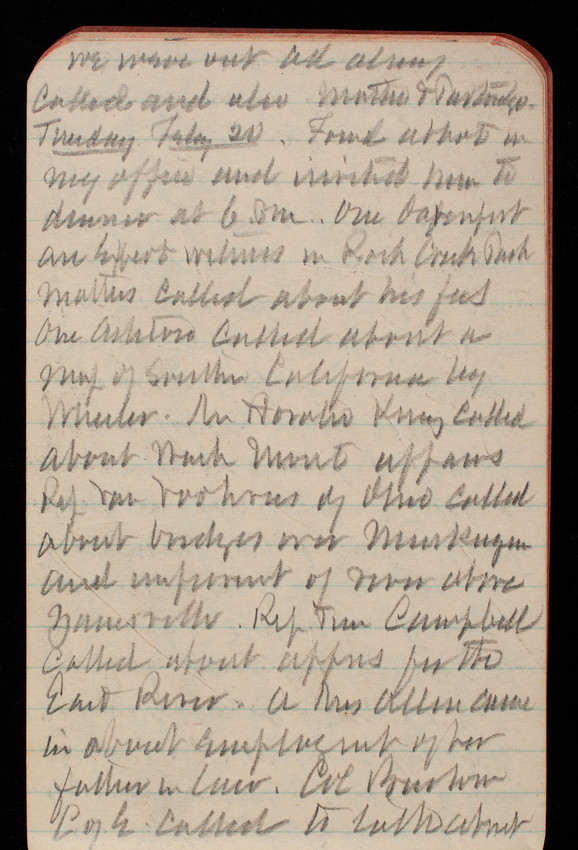 we were out all along
Called and also Mother &
Tuesday Feby 20. Found Abbot in
my office and invited him to
dinner at 6 P.M. One Davenport
an Expert witness in Rock Creek Park
matters called about his fees
One Ashton called about a
map of Southern California by
Wheeler. Mr Horatio King called
about Wash Monut affairs
Rep. Van Voorhies of Ohio called
about bridges over Muskingum
and improvmt of river above
Zanesville. Rep Campbell
called about apprns for the
East River. A Mrs Allen came
in about employment of her
father in law. Col
C of E called to talk about